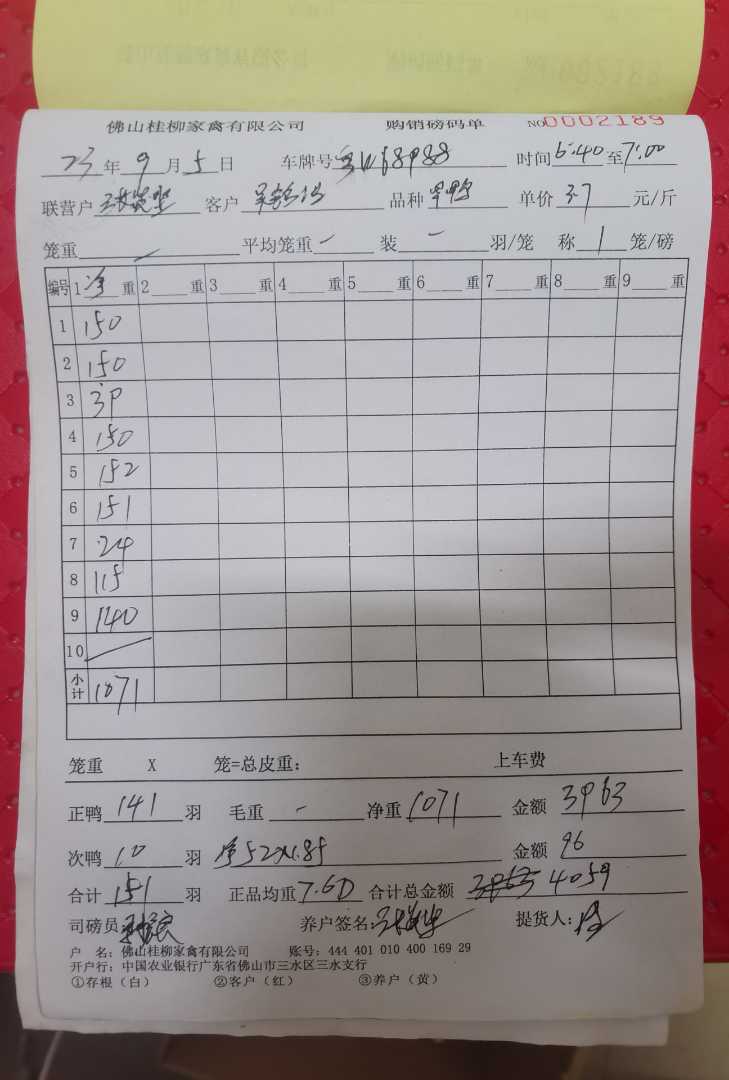 佛山桂柳家禽有限公司 购销磅码单 NO0002189
23年9月5日 车牌号 时间6:40至7:00
联营户 客户 品种 单价3.7元/斤
笼重 — 平均笼重 — 装 — 羽/笼 称 1 笼/磅
编号 1净重 2 重 3 重 4 重 5 重 6 重 7 重 8 重 9 重
1 150
2 150
3 39
4 150
5 152
6 151
7 24
8 115
9 140
10
小计 1071
笼重 X 笼=总皮重: 上车费
正鸭 141 羽 毛重 - 净重 1071 金额 3963
次鸭 10 羽 净52X1.85 金额 96
合计 151 羽 正品均重 7.60 合计总金额 4059
司磅员: 养户签名: 提货人:
户 名: 佛山桂柳家禽有限公司 账号: 444 401 010 400 169 29
开户行: 中国农业银行广东省佛山市三水区三水支行
①存根(白) ②客户(红) ③养户(黄)